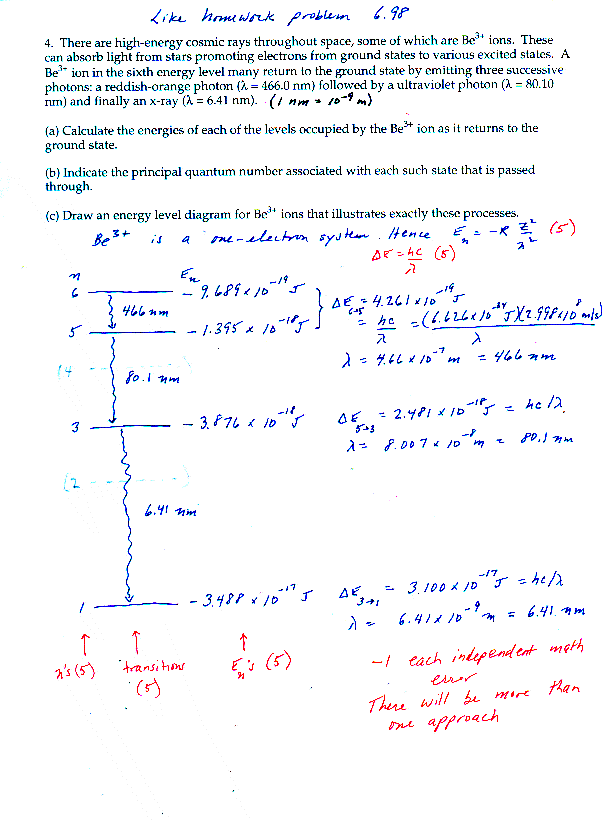 Like homework problem 6.98
4. There are high-energy cosmic rays throughout space, some of which are Be³⁺ ions. These
can absorb light from stars promoting electrons from ground states to various excited states. A
Be³⁺ ion in the sixth energy level many return to the ground state by emitting three successive
photons: a reddish-orange photon (λ = 466.0 nm) followed by a ultraviolet photon (λ = 80.10
nm) and finally an x-ray (λ = 6.41 nm). (1 nm = 10⁻⁹ m)
(a) Calculate the energies of each of the levels occupied by the Be³⁺ ion as it returns to the
ground state.
(b) Indicate the principal quantum number associated with each such state that is passed
through.
(c) Draw an energy level diagram for Be³⁺ ions that illustrates exactly these processes.
Be³⁺ is a one-electron system. Hence Eₙ = -R Z²/n² (5)
ΔE = hc/λ (5)
n Eₙ
6 - 9.689 x 10⁻¹⁹ J
466 nm ΔE₆→₅ = 4.261 x 10⁻¹⁹ J
5 - 1.395 x 10⁻¹⁸ J = hc/λ = (6.626 x 10⁻³⁴ J)(2.998 x 10⁸ m/s)/λ
λ = 4.66 x 10⁻⁷ m = 466 nm
(4 )
80.1 nm
3 - 3.876 x 10⁻¹⁸ J ΔE₅→₃ = 2.481 x 10⁻¹⁸ J = hc/λ
λ = 8.007 x 10⁻⁸ m = 80.1 nm
(2 )
6.41 nm
1 - 3.488 x 10⁻¹⁷ J ΔE₃→₁ = 3.100 x 10⁻¹⁷ J = hc/λ
λ = 6.41 x 10⁻⁹ m = 6.41 nm
n's (5) transitions (5) Eₙ's (5)
-1 each independent math
error
There will be more than
one approach